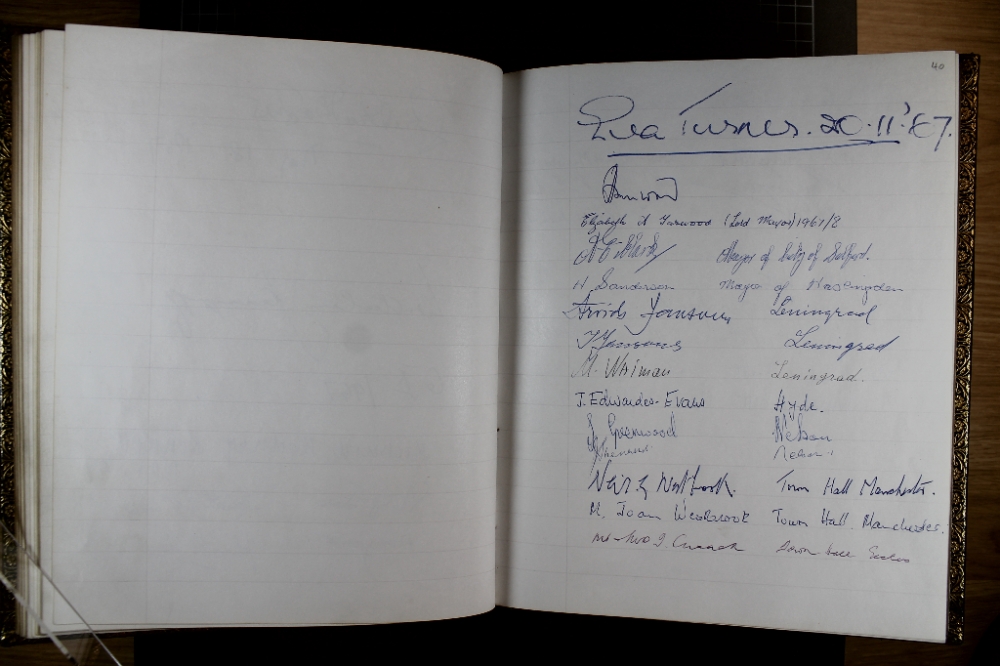 40
Eva Turner. 20.11.'67.
Elizabeth A Yarwood (Lord Mayor) 1967/8
Mayor of City of Salford.
H Sanderson Mayor of Haslingden
Arvids Jansons Leningrad
Leningrad
M. Waiman Leningrad.
J. Edwardes-Evans Hyde.
J Greenwood Nelson
Nelson
Neil G Westbrook. Town Hall Manchester.
M. Joan Westbrook Town Hall. Manchester.
Mr & Mrs J. Town Hall